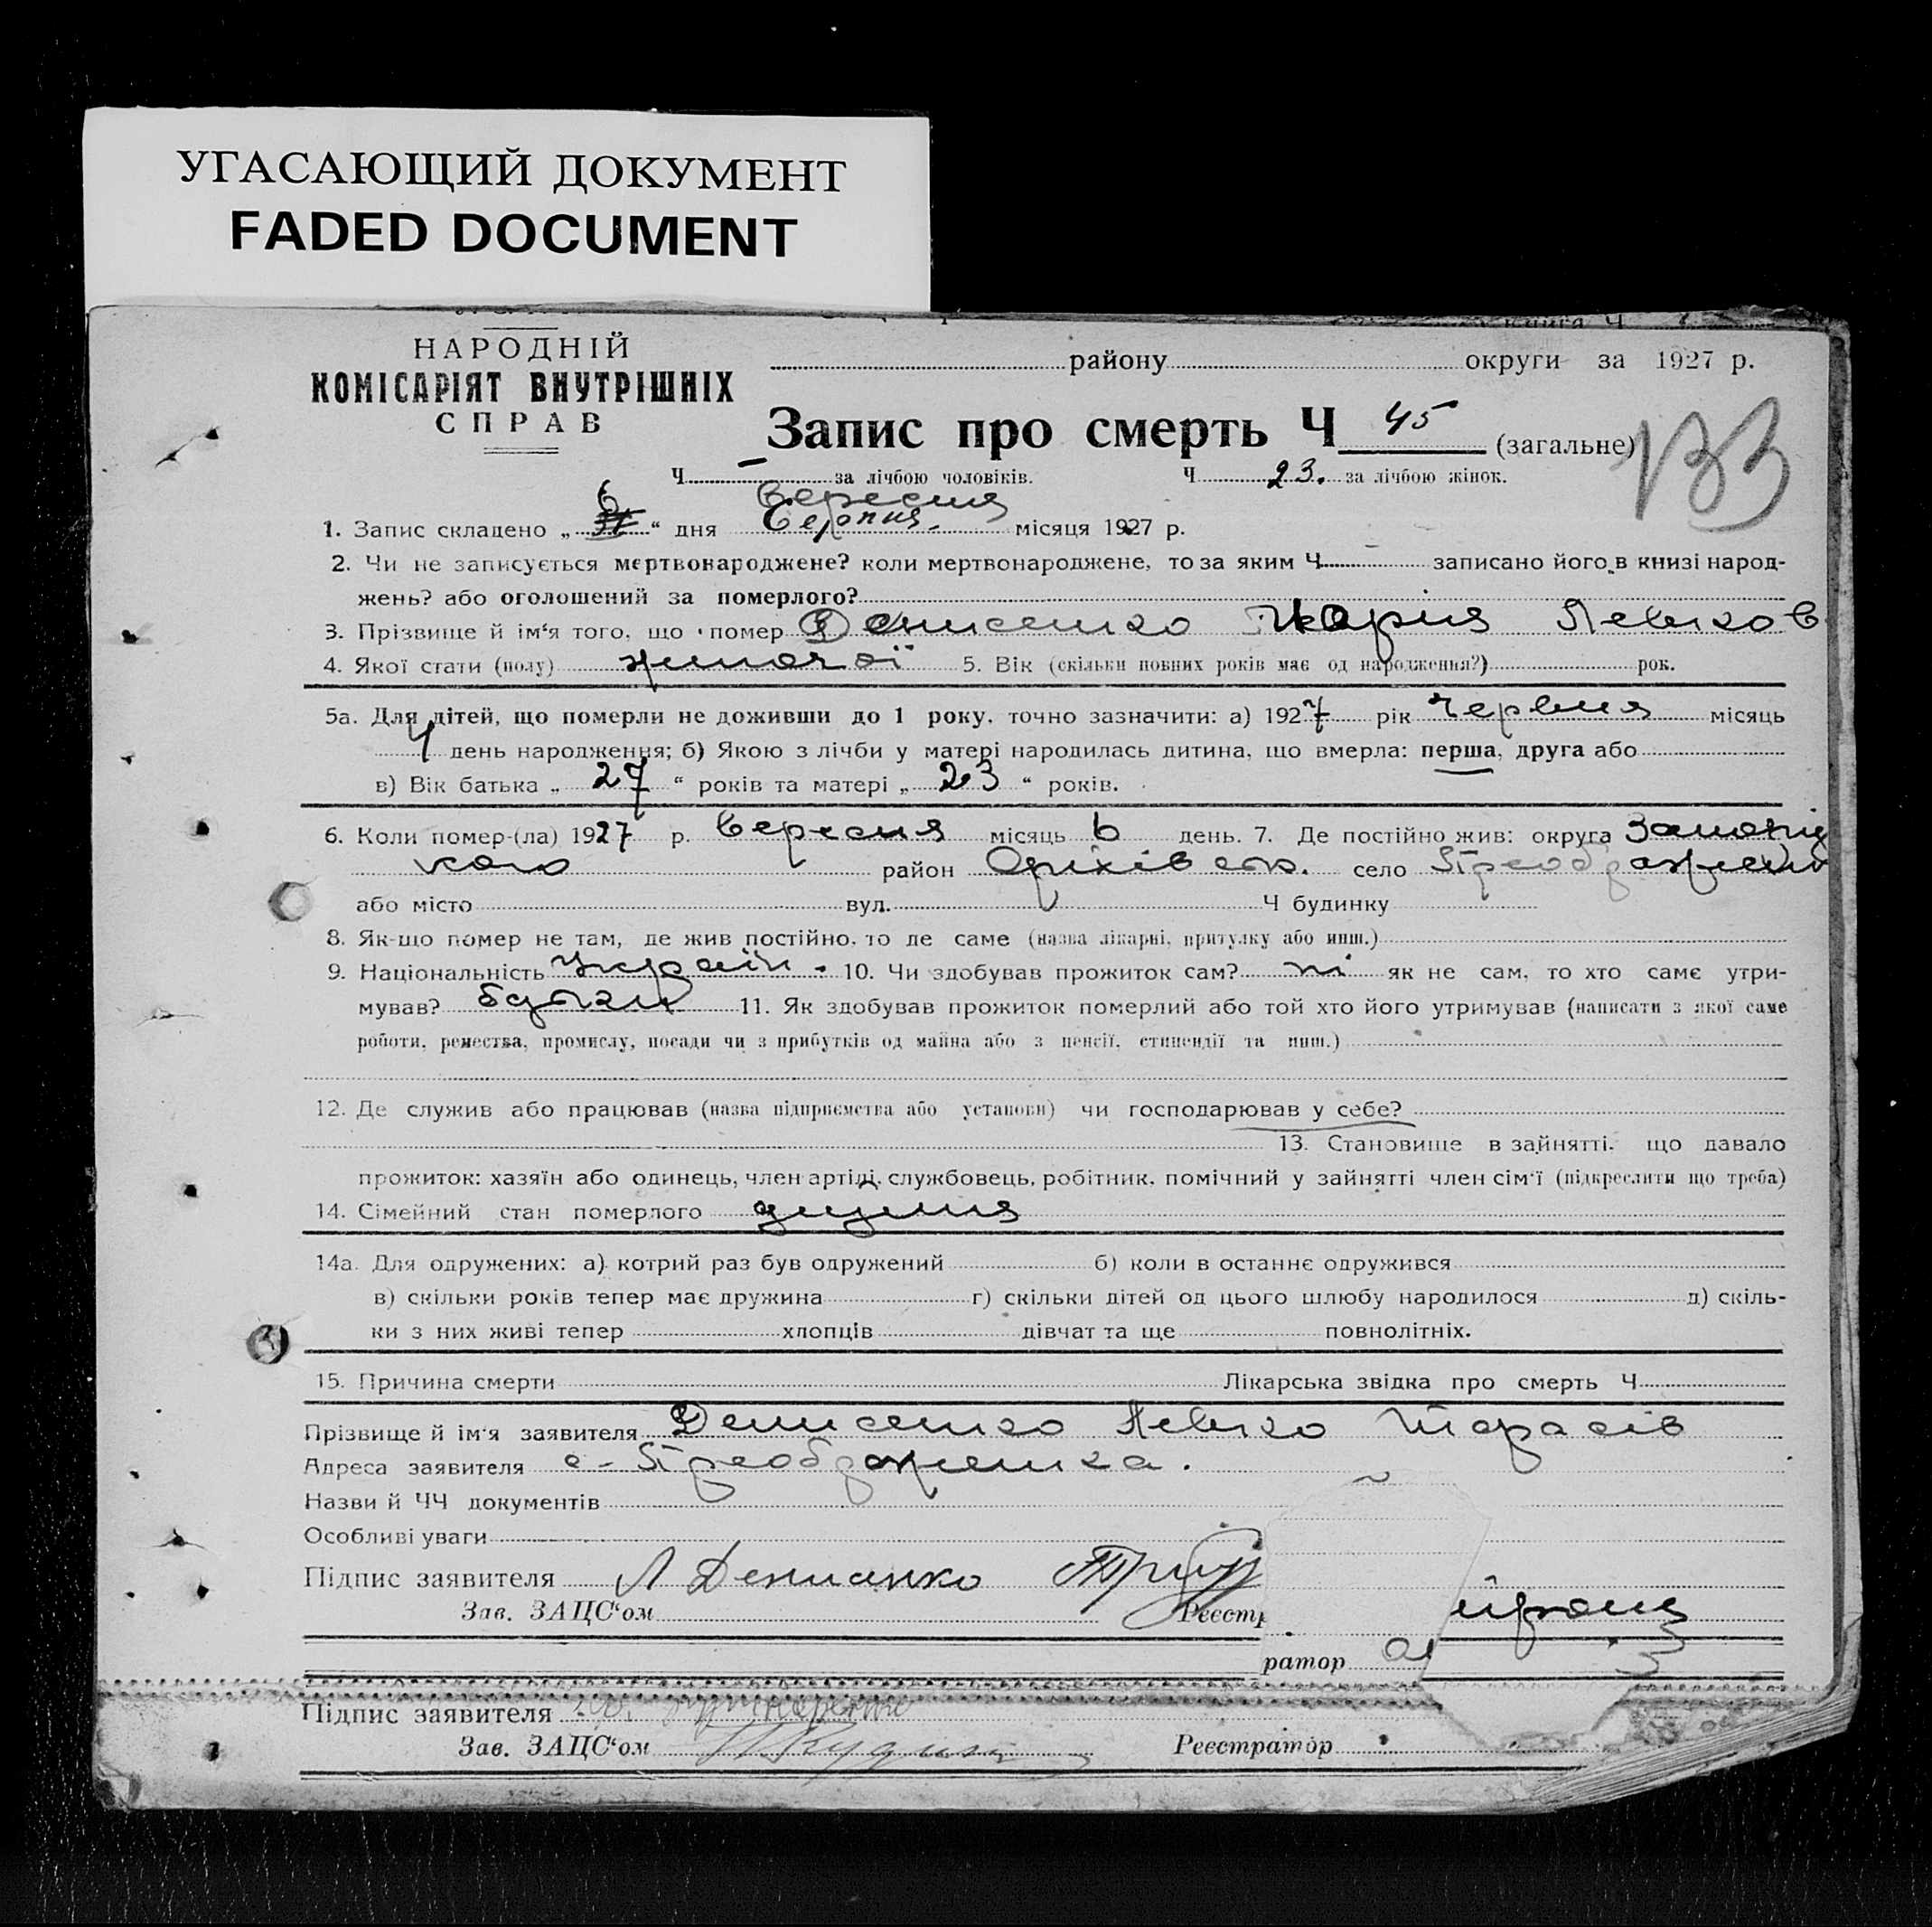 УГАСАЮЩИЙ ДОКУМЕНТ
FADED DOCUMENT
НАРОДНІЙ
КОМІСАРІЯТ ВНУТРІШНІХ
СПРАВ
району округи за 1927 р.
Запис про смерть Ч 45 (загальне) 133
Ч – за лічбою чоловіків. Ч 23. за лічбою жінок.
6 Вересня
1. Запис складено „ “ дня Серпня. місяця 1927 р.
2. Чи не записується мертвонароджене? коли мертвонароджене, то за яким Ч записано його в книзі народ-
жень? або оголошений за померлого?
3. Прізвище й ім‘я того, що помер Денисенко Марія Левков
4. Якої стати (полу) жиночої 5. Вік (скільки повних років має од народження?) рок.
5а. Для дітей, що померли не доживши до 1 року, точно зазначити: а) 1927 рік Червня місяць
4 день народження; б) Якою з лічби у матері народилась дитина, що вмерла: перша, друга або
в) Вік батька „ 27 “ років та матері „ 23 “ років.
6. Коли помер-(ла) 1927 р. Вересня місяць 6 день. 7. Де постійно жив: округа Запоріз
кого район Оріхівськ. село Преображен
або місто вул. Ч будинку
8. Як-що помер не там, де жив постійно, то де саме (назва лікарні, притулку або инш.)
9. Національність Україн. 10. Чи здобував прожиток сам? ні як не сам, то хто саме утри-
мував? батьки 11. Як здобував прожиток померлий або той хто його утримував (написати з якої саме
роботи, ремества, промислу, посади чи з прибутків од майна або з пенсії, стипендії та инш.)
12. Де служив або працював (назва підприємства або установи) чи господарював у себе?
13. Становище в зайнятті, що давало
прожиток: хазяїн або одинець, член артілі, службовець, робітник, помічний у зайнятті член сім‘ї (підкреслити що треба)
14. Сімейний стан померлого дитина
14а. Для одружених: а) котрий раз був одружений б) коли в останнє одружився
в) скільки років тепер має дружина г) скільки дітей од цього шлюбу народилося д) скіль-
ки з них живі тепер хлопців дівчат та ще повнолітніх.
15. Причина смерти Лікарська звідка про смерть Ч
Прізвище й ім‘я заявителя Денисенко Левко Тарасів
Адреса заявителя с. Преображенка.
Назви й ЧЧ документів
Особливі уваги
Підпис заявителя Л Денисенко
Зав. ЗАЦС‘ом Реєстр
ратор
Підпис заявителя
Зав. ЗАЦС‘ом Реєстратор